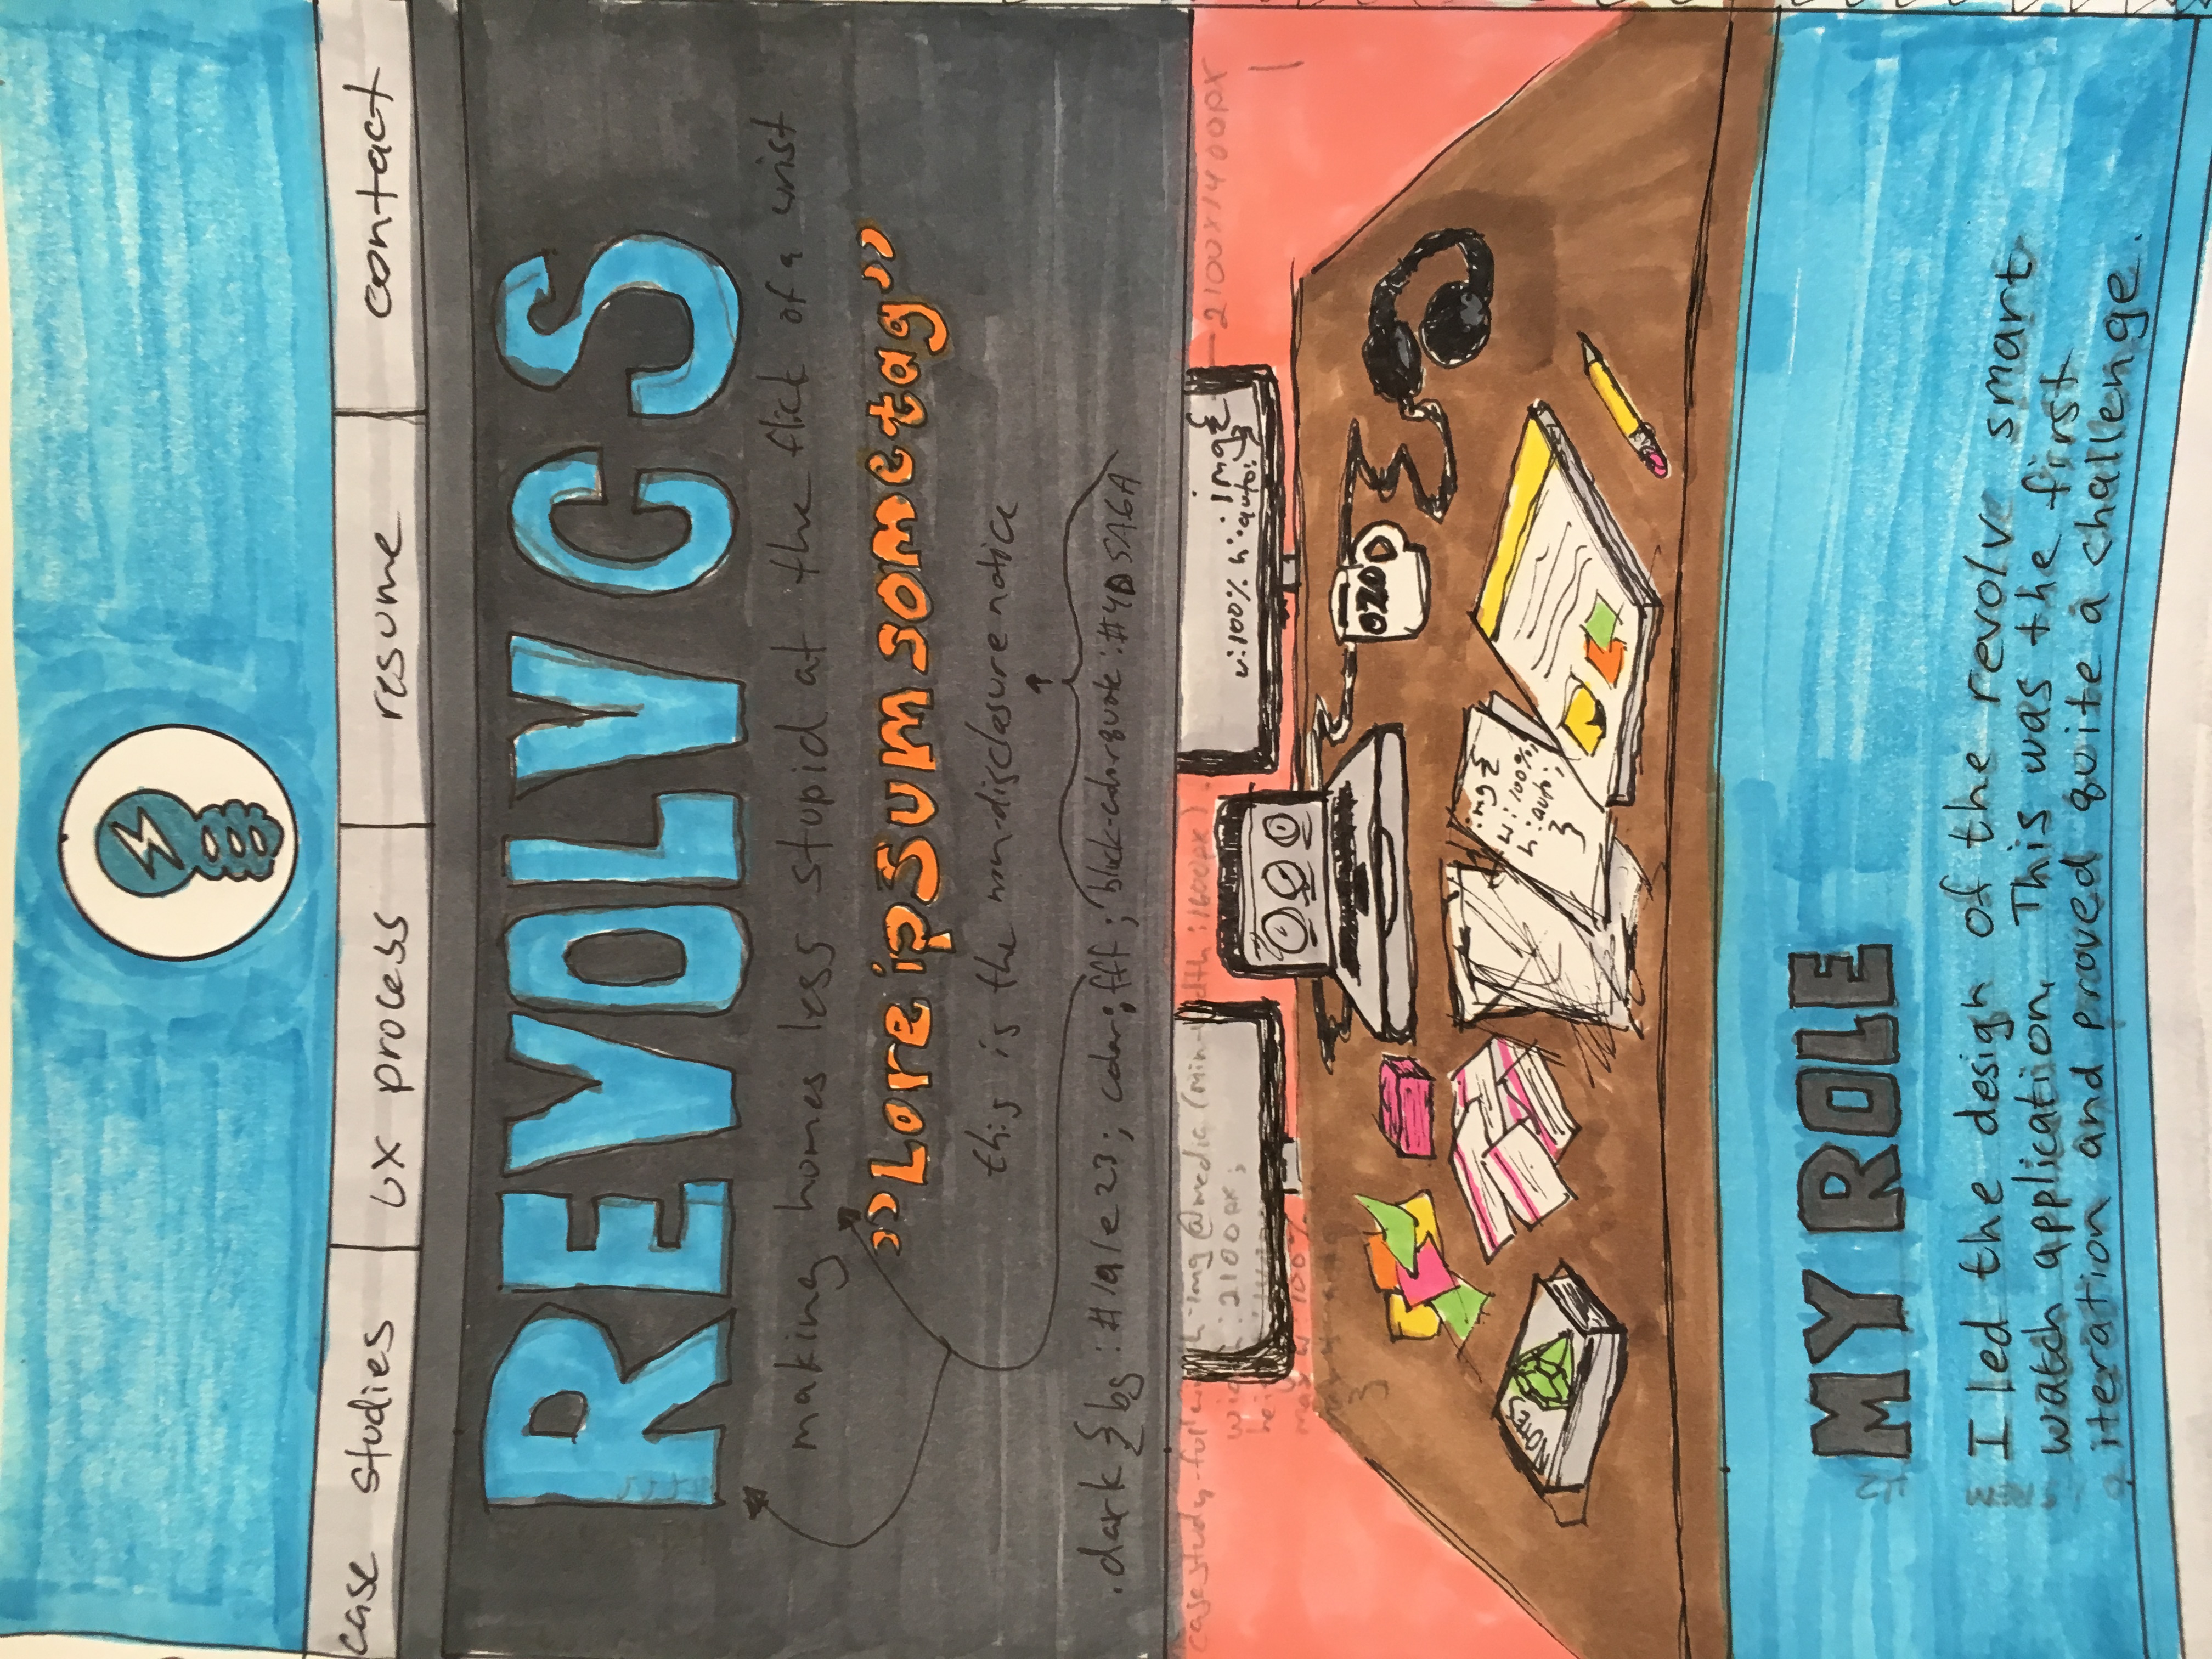 case studies
ux process
resume
contact
REVOLV CS
making homes less stupid at the flick of a wrist
”Lore ipsum some tag”
this is the non-disclosure notice
.dark {bg : #1a1e23; color: fff; block-color quote : #4D5A6A
img @media (min-width : 1600px)
2100x1400px
width : 2100px;
img {
w:100% h:auto; }
max w 100%
0200
NOTES
img {
w: 100%;
h: auto;
}
H2
MY ROLE
I led the design of the revolv smart
watch application. This was the first
iteration and proved quite a challenge.